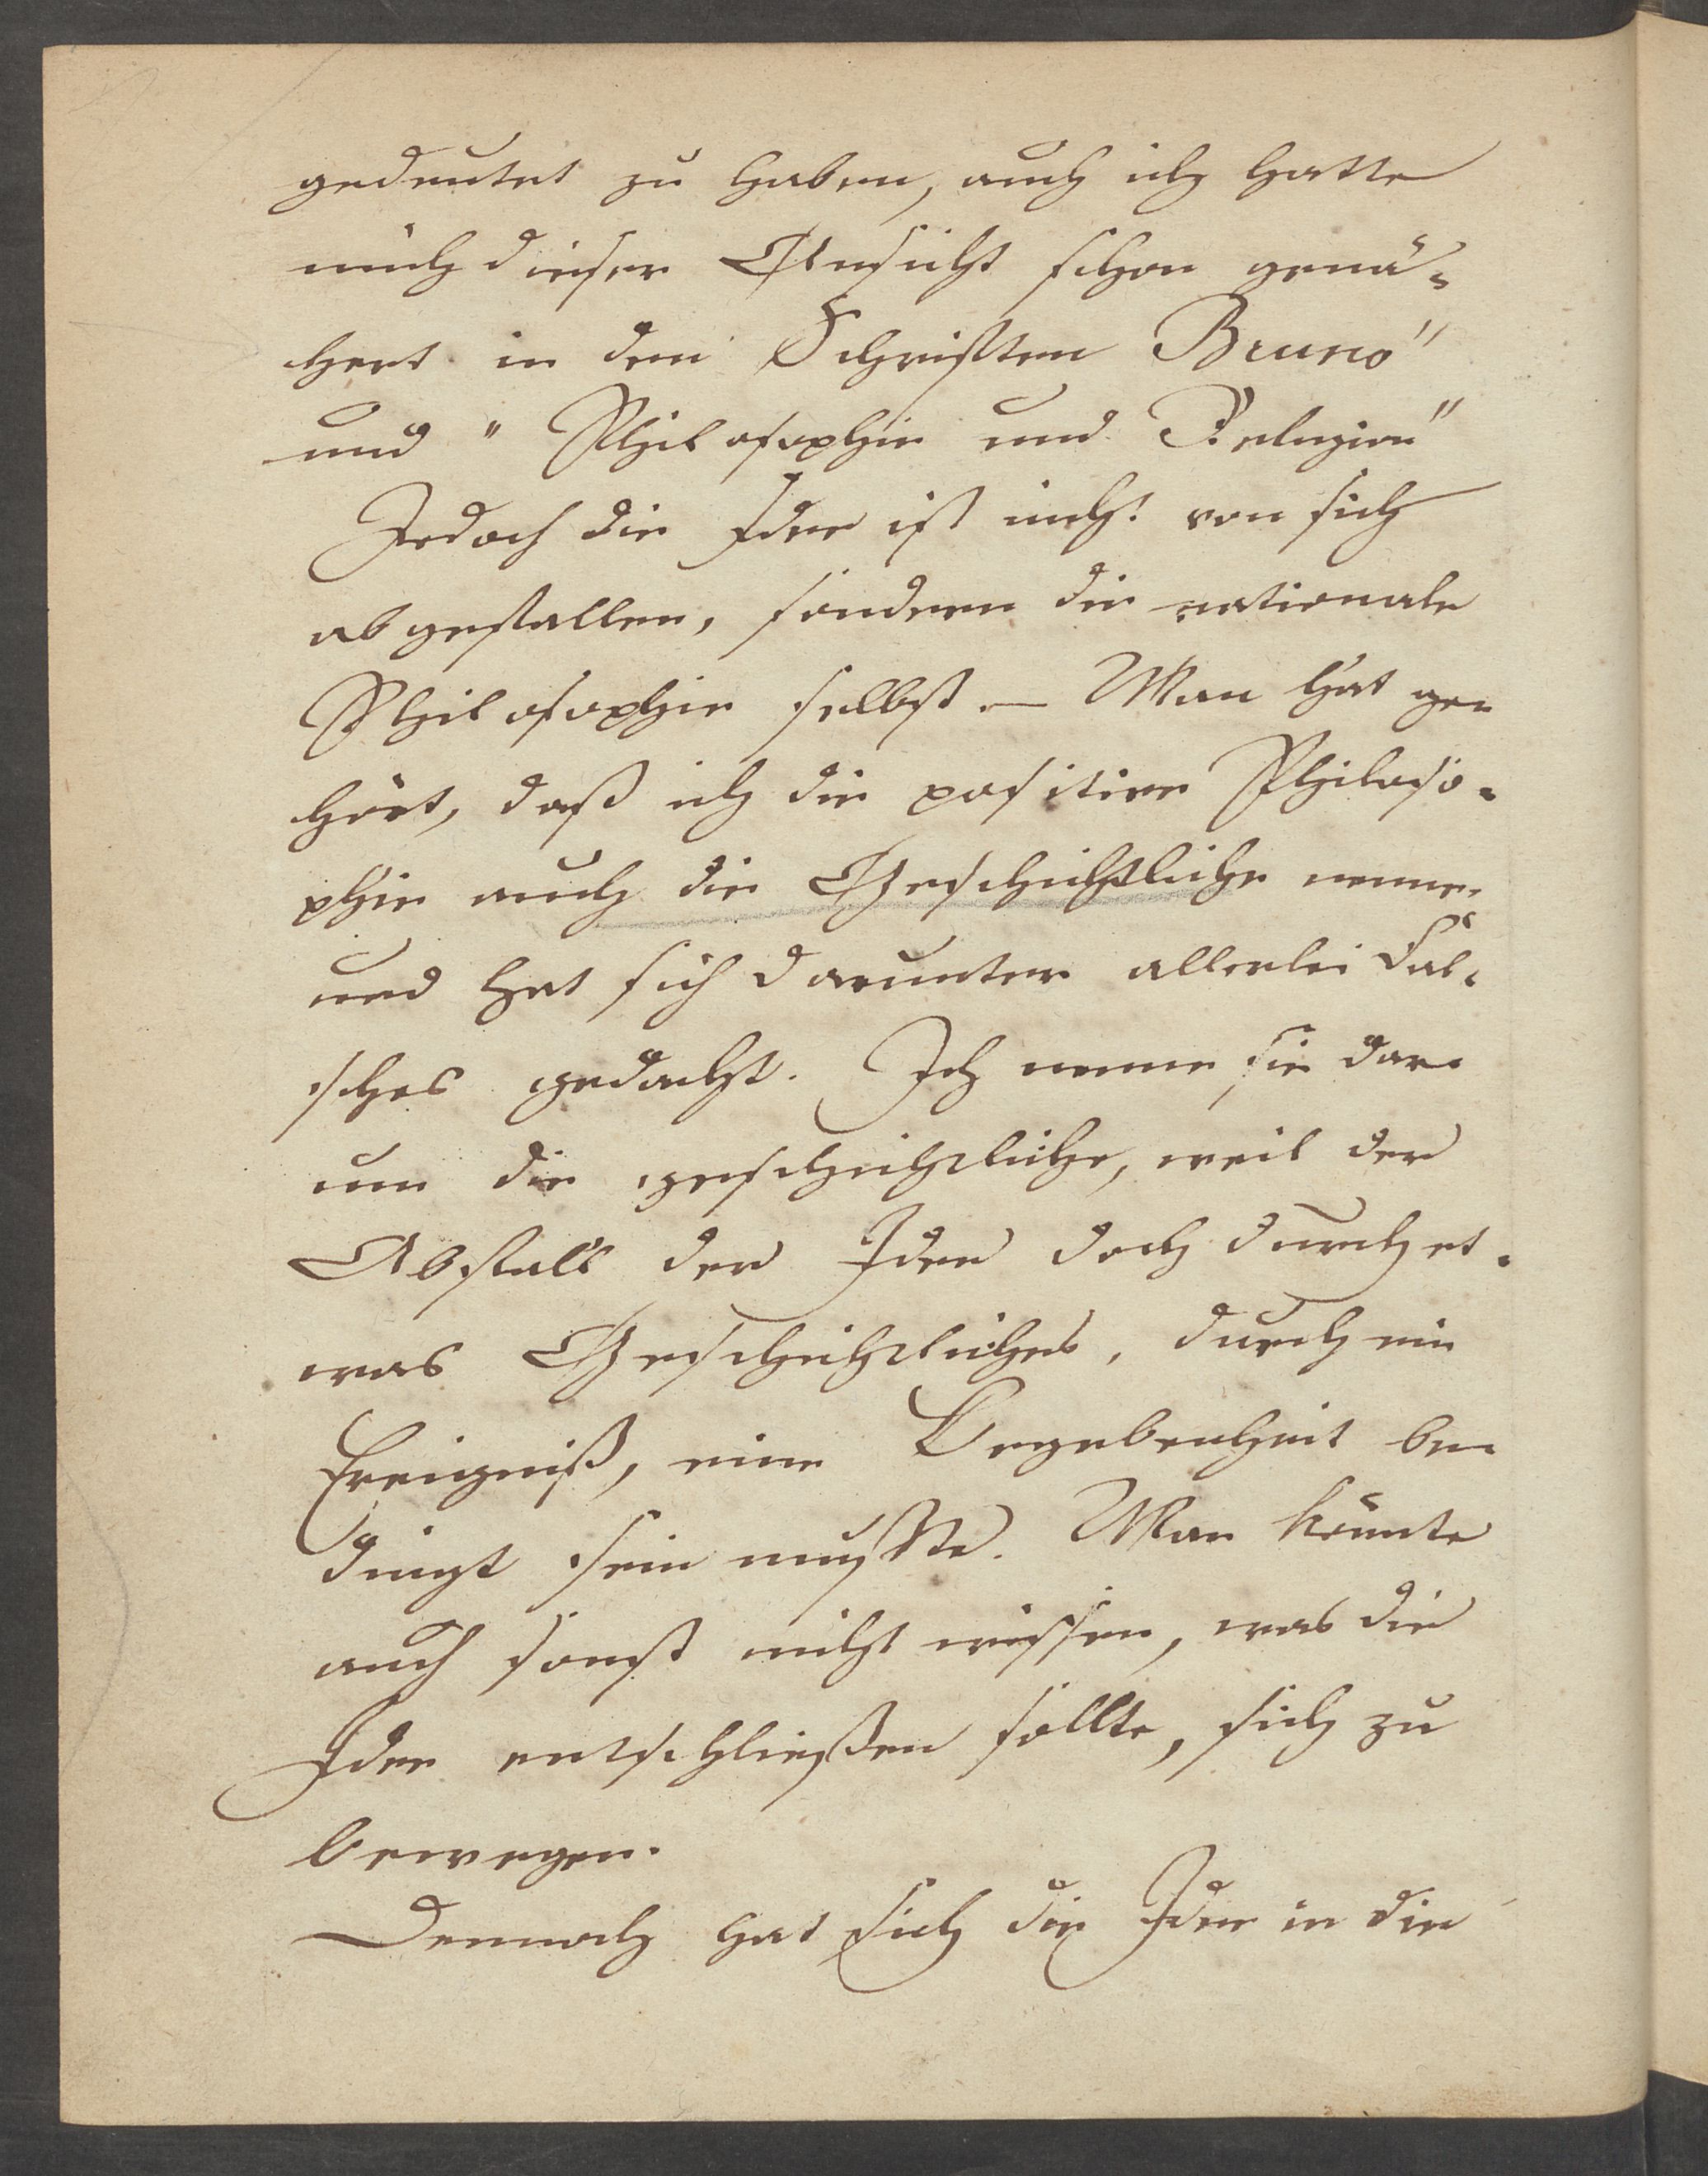 gedeutet zu haben, auch ich hatte
mich dieser Ansicht schon genä-
hert in den Schriften Bruno"
und "Philosophie und Religion"
Jedoch die Idee ist nicht von sich
abgefallen, sondern die rationale
Philosophie selbst. — Man hat ge-
hört, daß ich die positive Philoso-
phie auch die Geschichtliche nenne,
und hat sich darunter allerlei Fal-
sches gedacht. Ich nenne sie dar-
um die geschichtliche, weil der
Abfall der Idee doch durch et-
was Geschichtliches, durch ein
Ereigniß, eine Begebenheit be-
dingt sein mußte. Man könnte
auch sonst nicht wissen, was die
Idee entschließen sollte, sich zu
bewegen.
Dennoch hat sich die Idee in die